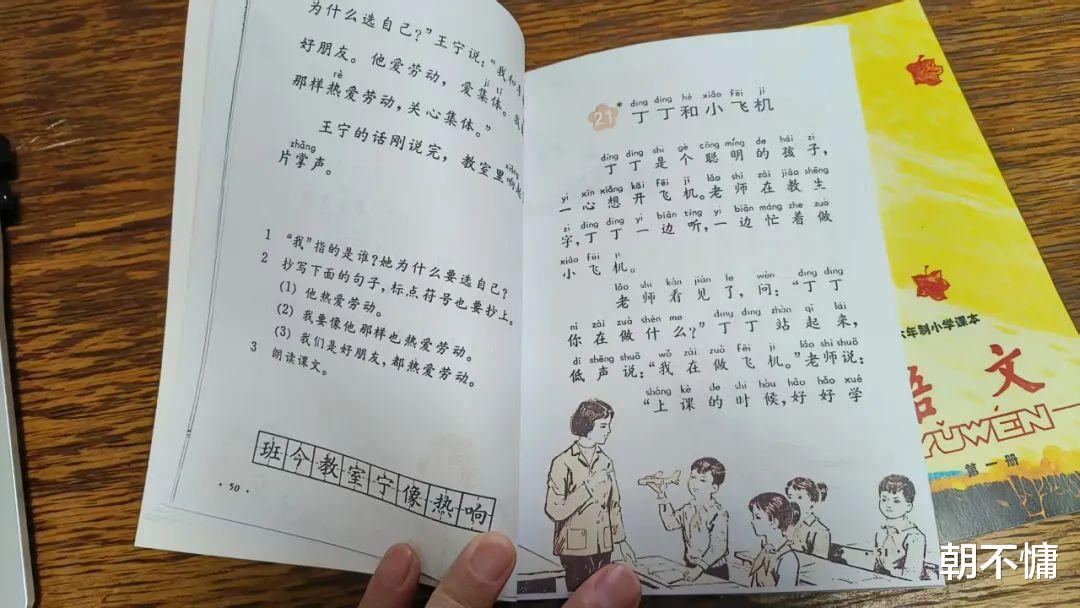 为什么选自己?”王宁说:“我和李
好朋友。他爱劳动,爱集体。我
jí tǐ
那样热爱劳动,关心集体。”
rè
王宁的话刚说完,教室里响起
xiǎng
片掌声。
zhǎng
1 “我”指的是谁?她为什么要选自己?
2 抄写下面的句子,标点符号也要抄上。
(1) 他热爱劳动。
(2) 我要像他那样也热爱劳动。
(3) 我们是好朋友,都热爱劳动。
3 朗读课文。
班今教室宁像热响
· 50 ·
dīng dīng hé xiǎo fēi jī
21* 丁丁和小飞机
dīng dīng shì gè cōng míng de hái zi
丁丁是个聪明的孩子,
yì xīn xiǎng kāi fēi jī lǎo shī zài jiāo shēng
一心想开飞机。老师在教生
zì dīng dīng yì biān tīng yì biān máng zhe zuò
字,丁丁一边听,一边忙着做
xiǎo fēi jī
小飞机。
lǎo shī kàn jiàn le wèn dīng dīng
老师看见了,问:“丁丁
nǐ zài zuò shén me dīng dīng zhàn qǐ lái
你在做什么?”丁丁站起来,
dī shēng shuō wǒ zài zuò fēi jī lǎo shī shuō
低声说:“我在做飞机。”老师说:
shàng kè de shí hòu hǎo hǎo xué
“上课的时候,好好学
51
六年制小学课本
语文
YǔWÉN
第一册
朝不慵